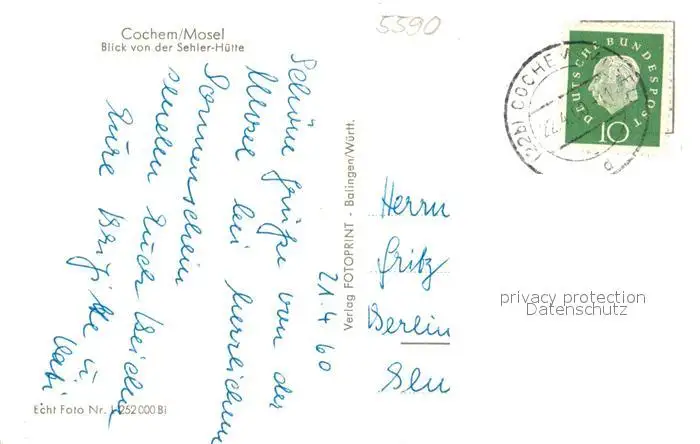 5590
Cochem/Mosel
Blick von der Sehler-Hütte
21.4.60
Schöne Grüße von der
Mosel bei herrlichem
Sonnenschein
senden Euch
Eure
Verlag FOTOPRINT - Balingen/Württ.
Echt Foto Nr. L 252000 Bi
DEUTSCHE BUNDESPOST
10
(22b) COCHEM
Herrn
Fritz
Berlin
privacy protection
Datenschutz